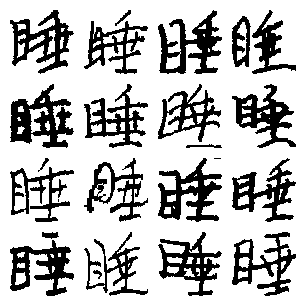 睡睡睡睡
睡睡睡睡
睡睡睡睡
睡睡睡睡